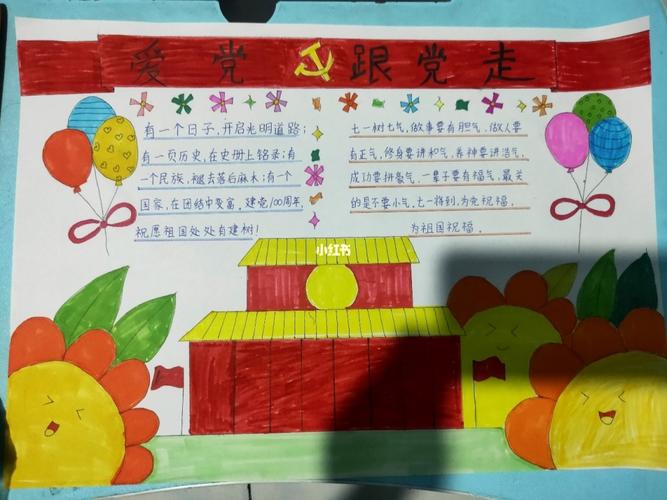 爱党跟党走
有一个日子,开启光明道路;
有一页历史,在史册上铭录;有
一个民族,褪去落后麻木;有一个
国家,在团结中变富。建党100周年,
祝愿祖国处处有建树!
七一树七气,做事要有胆气,做人要
有正气,修身要讲和气,养神要讲浩气,
成功要拼豪气,一辈子要有福气,最关
的是不要小气。七一将到,为党祝福,
为祖国祝福。
小红书